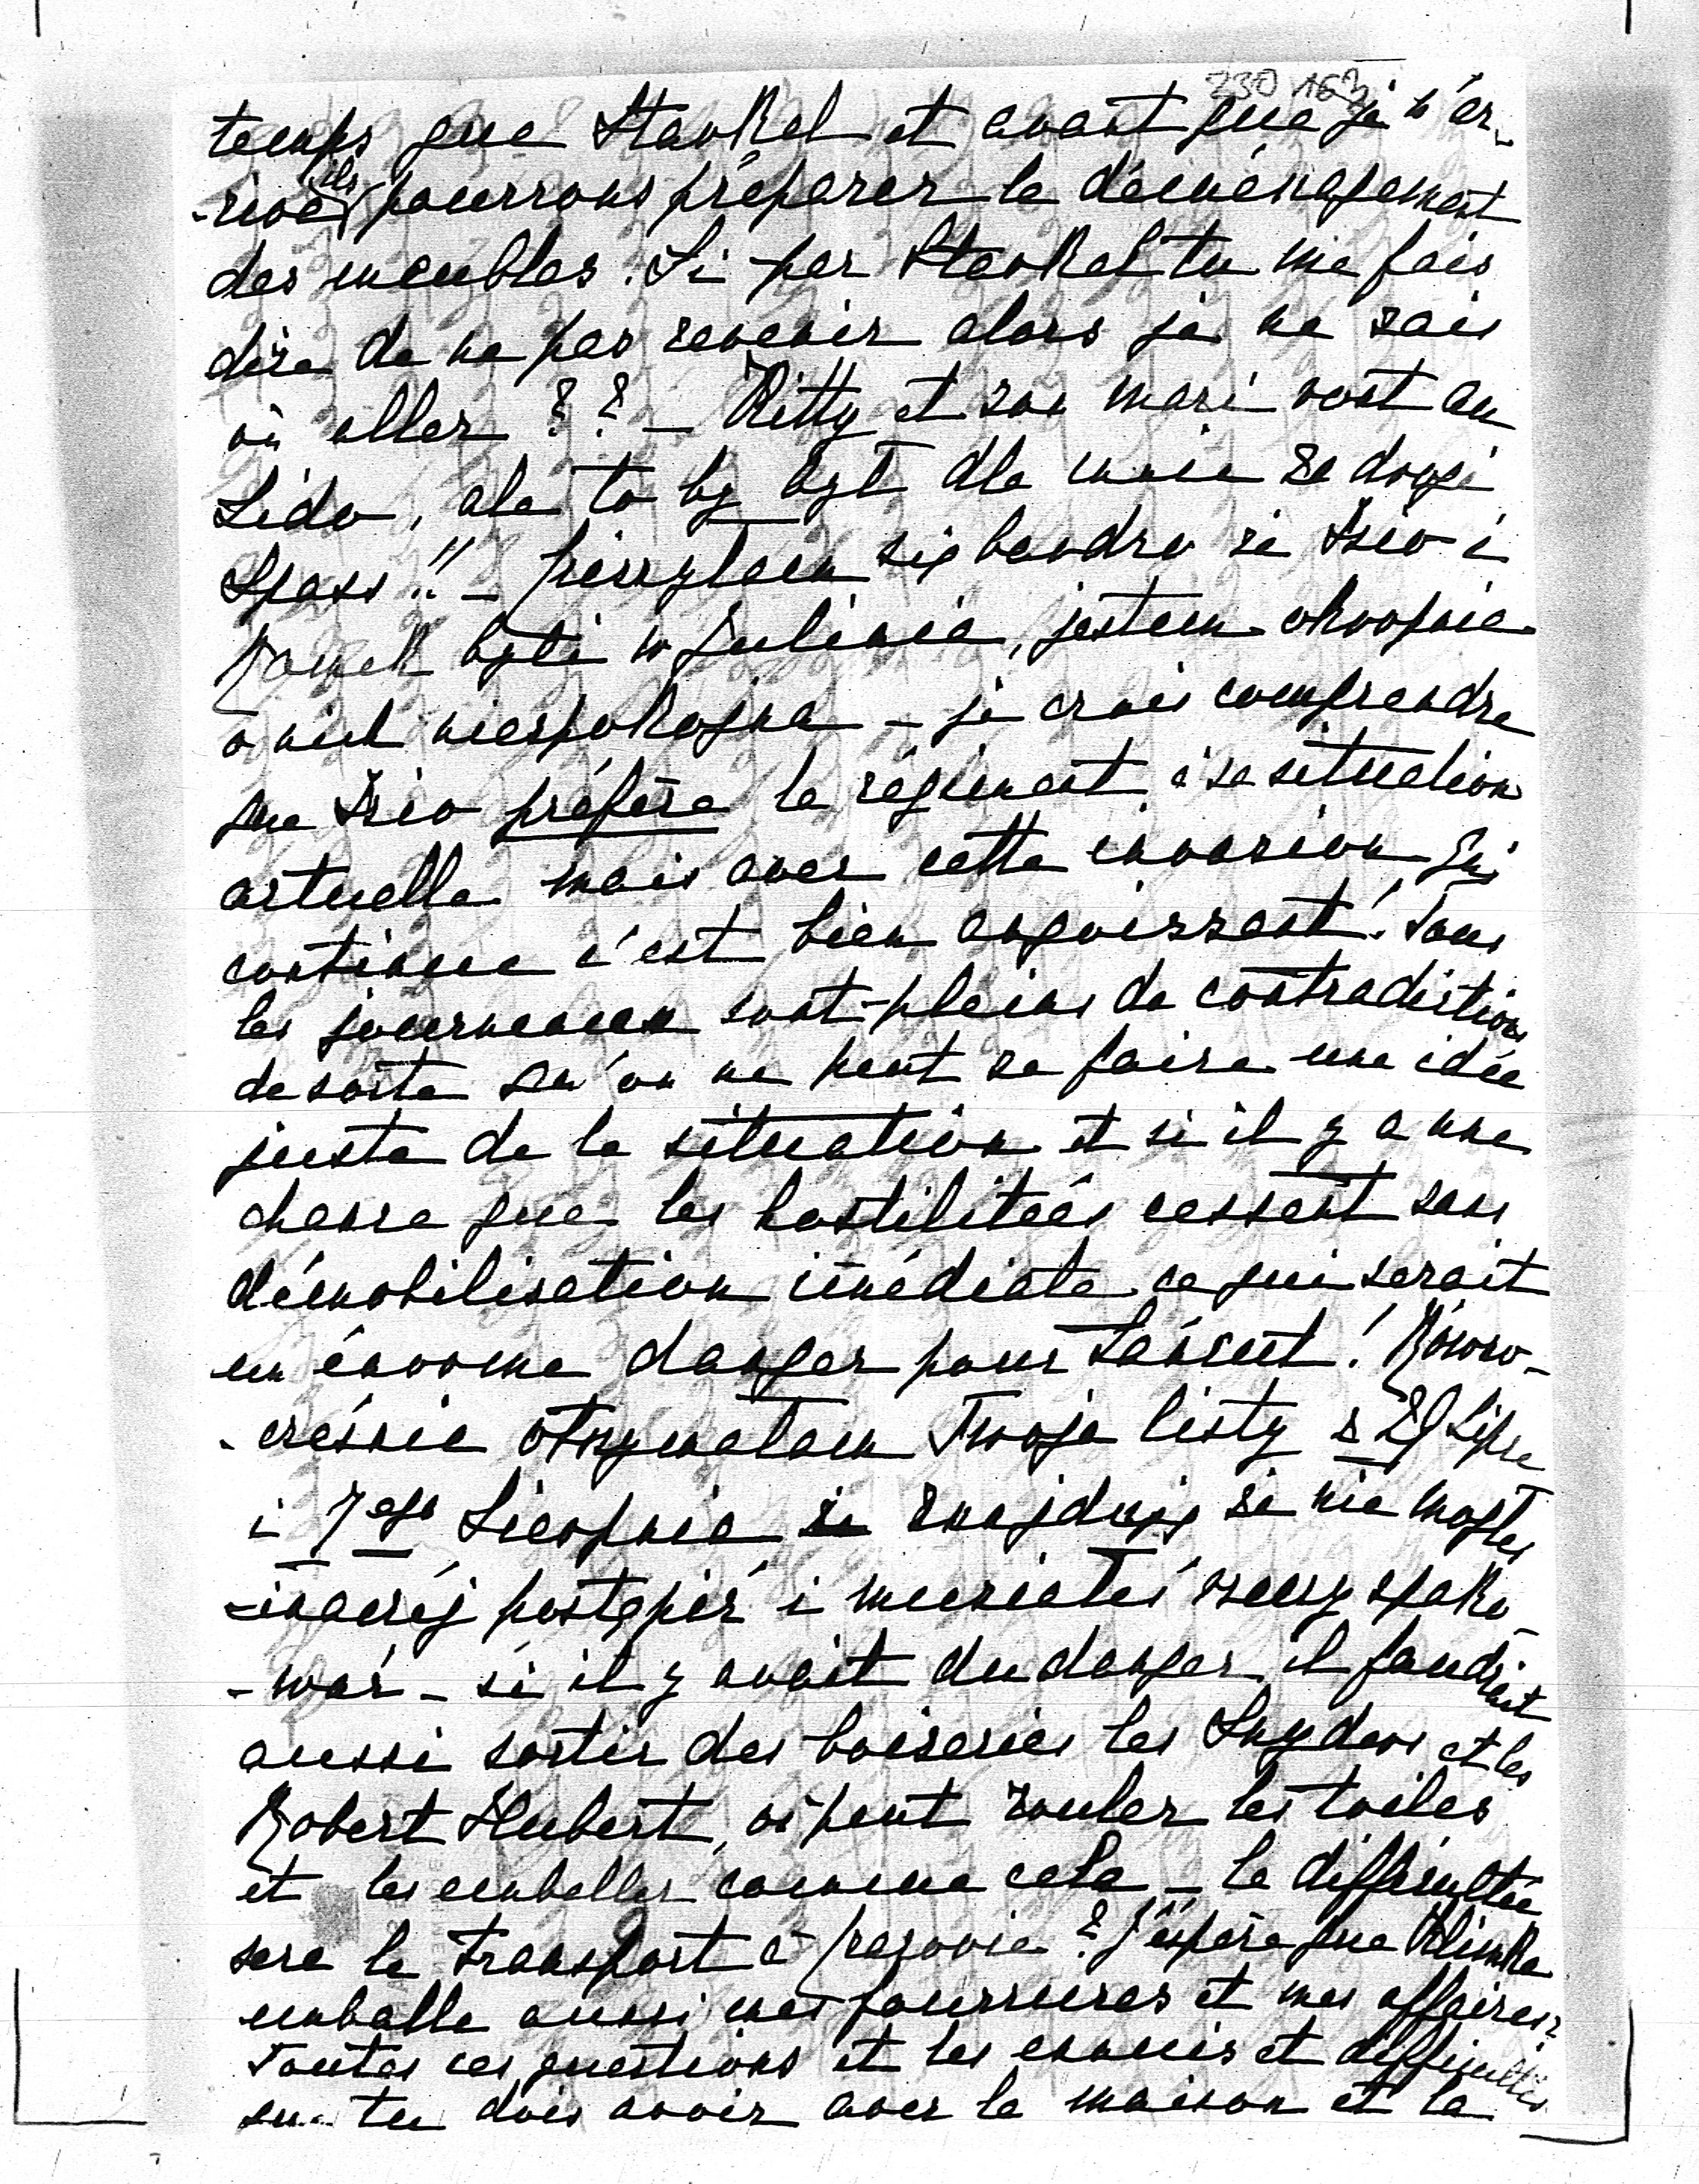 230 163
temps que Stankel et avant que je n'ar-
-rive ils pourrons préparer le déménagement
des meubles. Si par Stankel tu me fais
dire de ne pas revenir alors je ne sais
où aller ?? – Kitty et son mari sont au
Lido, ale to by był dla mnie za drogi
Spass!! – że Józio i
Romek byli w Julinie, jestem okropnie
o nich niespokojna – je crois comprendre
que Józio préfère le régiment à sa situation
actuelle mais avec cette invasion qui
continue c'est bien angoissant! Tous
les journeaux sont pleins de contradictions
de sorte qu'on ne peut se faire une idée
juste de la situation et si il y a une
chance que les hostilitées cessent sans
démobilisation imédiate ce qui serait
un énorme danger pour Łańcut! Równo-
-cześnie otrzymałam Twoje listy z 29 Lipca
i 7ego Sierpnia znajduję że nie mogłeś
-inaczéj postąpić i musiałeś rzeczy spako-
-wać – si il y avait du danger il faudrait
aussi sortir des boiseries les Snyders et les
Robert Hubert, on peut rouler les toiles
et les emballer comme cela – la difficultée
sera le transport à ? J'éspère que Klimka
emballe aussi mes fourrures et mes affaires?
Toutes ces questions et les ennuis et difficultés
que tu dois avoir avec la maison et la